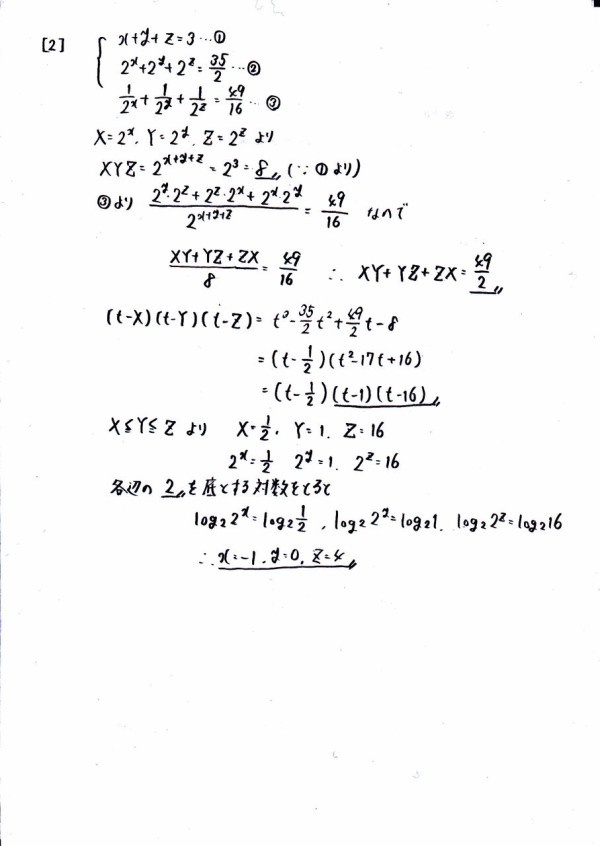 [2] { x+y+z=3 …①
2^x+2^y+2^z=35/2 …②
1/2^x+1/2^y+1/2^z=49/16 …③
X=2^x, Y=2^y, Z=2^z より
XYZ=2^{x+y+z}=2^3=8 (∵①より)
③より (2^y・2^z+2^z・2^x+2^x・2^y)/2^{x+y+z}=49/16 なので
(XY+YZ+ZX)/8=49/16 ∴ XY+YZ+ZX=49/2
(t-X)(t-Y)(t-Z)=t^3-35/2t^2+49/2t-8
=(t-1/2)(t^2-17t+16)
=(t-1/2)(t-1)(t-16)
X≦Y≦Z より X=1/2, Y=1, Z=16
2^x=1/2 2^y=1, 2^z=16
各辺の 2 を底とする対数をとると
log₂2^x=log₂1/2, log₂2^y=log₂1, log₂2^z=log₂16
∴ x=-1, y=0, z=4